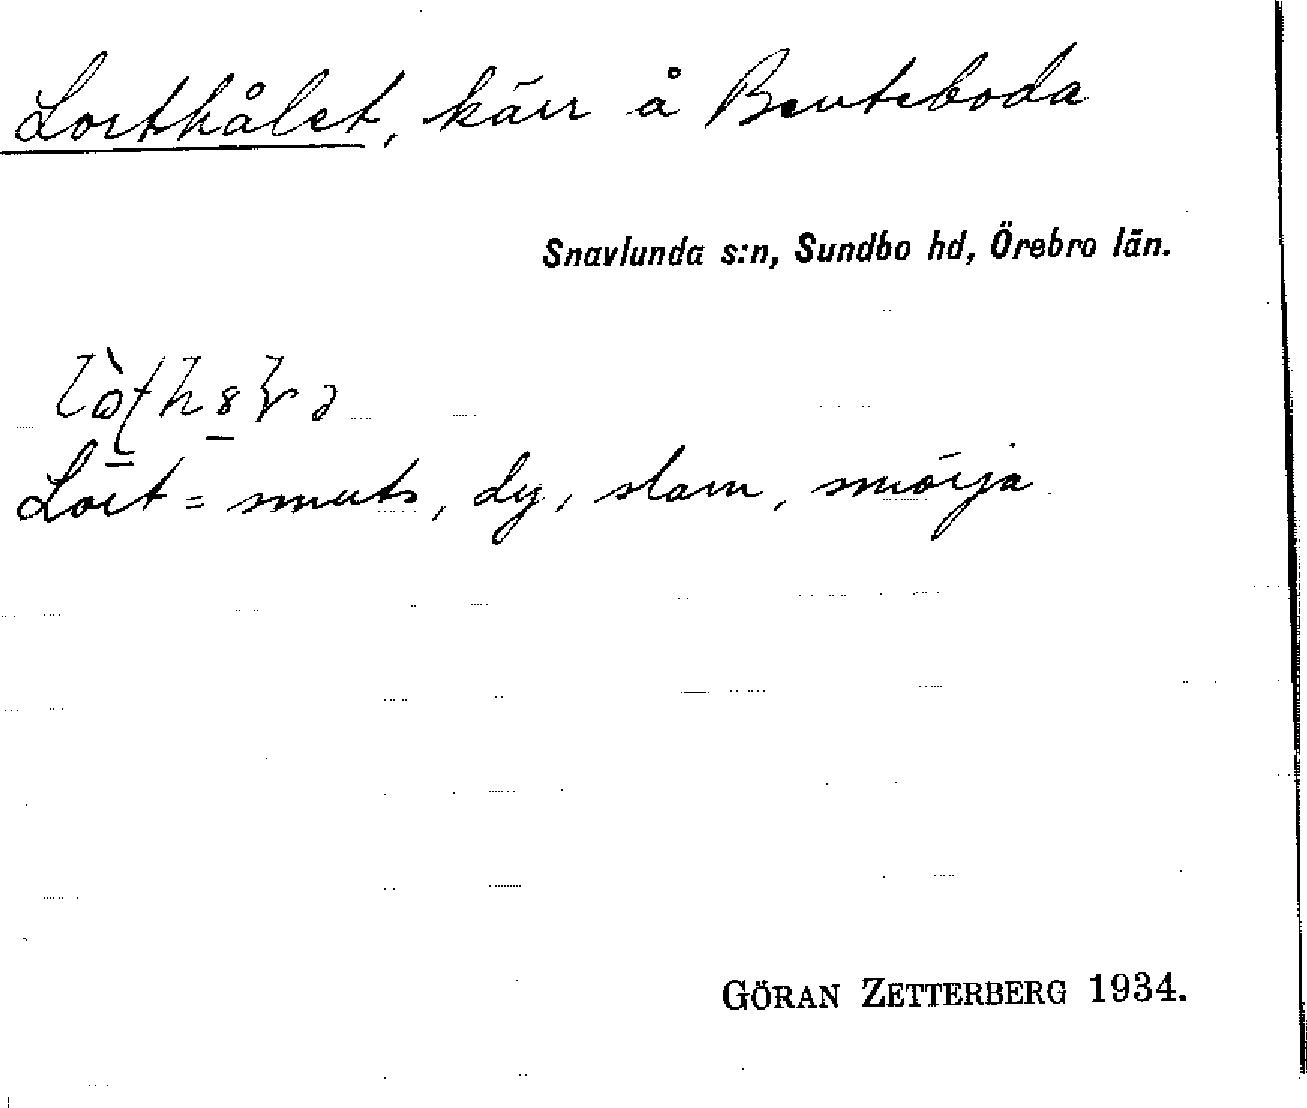 Lorthålet, kärr å Benteboda
Snavlunda s:n, Sundbo hd, Örebro län.
Lort = smuts, dy, slam, smörja
GÖRAN ZETTERBERG 1934.